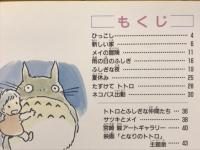 もくじ
ひっこし 4
新しい家 6
メイの冒険 11
雨の日のふしぎ 16
ふしぎな夜 19
夏休み 25
たすけて トトロ 28
ネコバス出動 30
トトロとふしぎな仲間たち 36
サツキとメイ 38
宮崎 駿アートギャラリー 40
映画「となりのトトロ」
主題歌 43